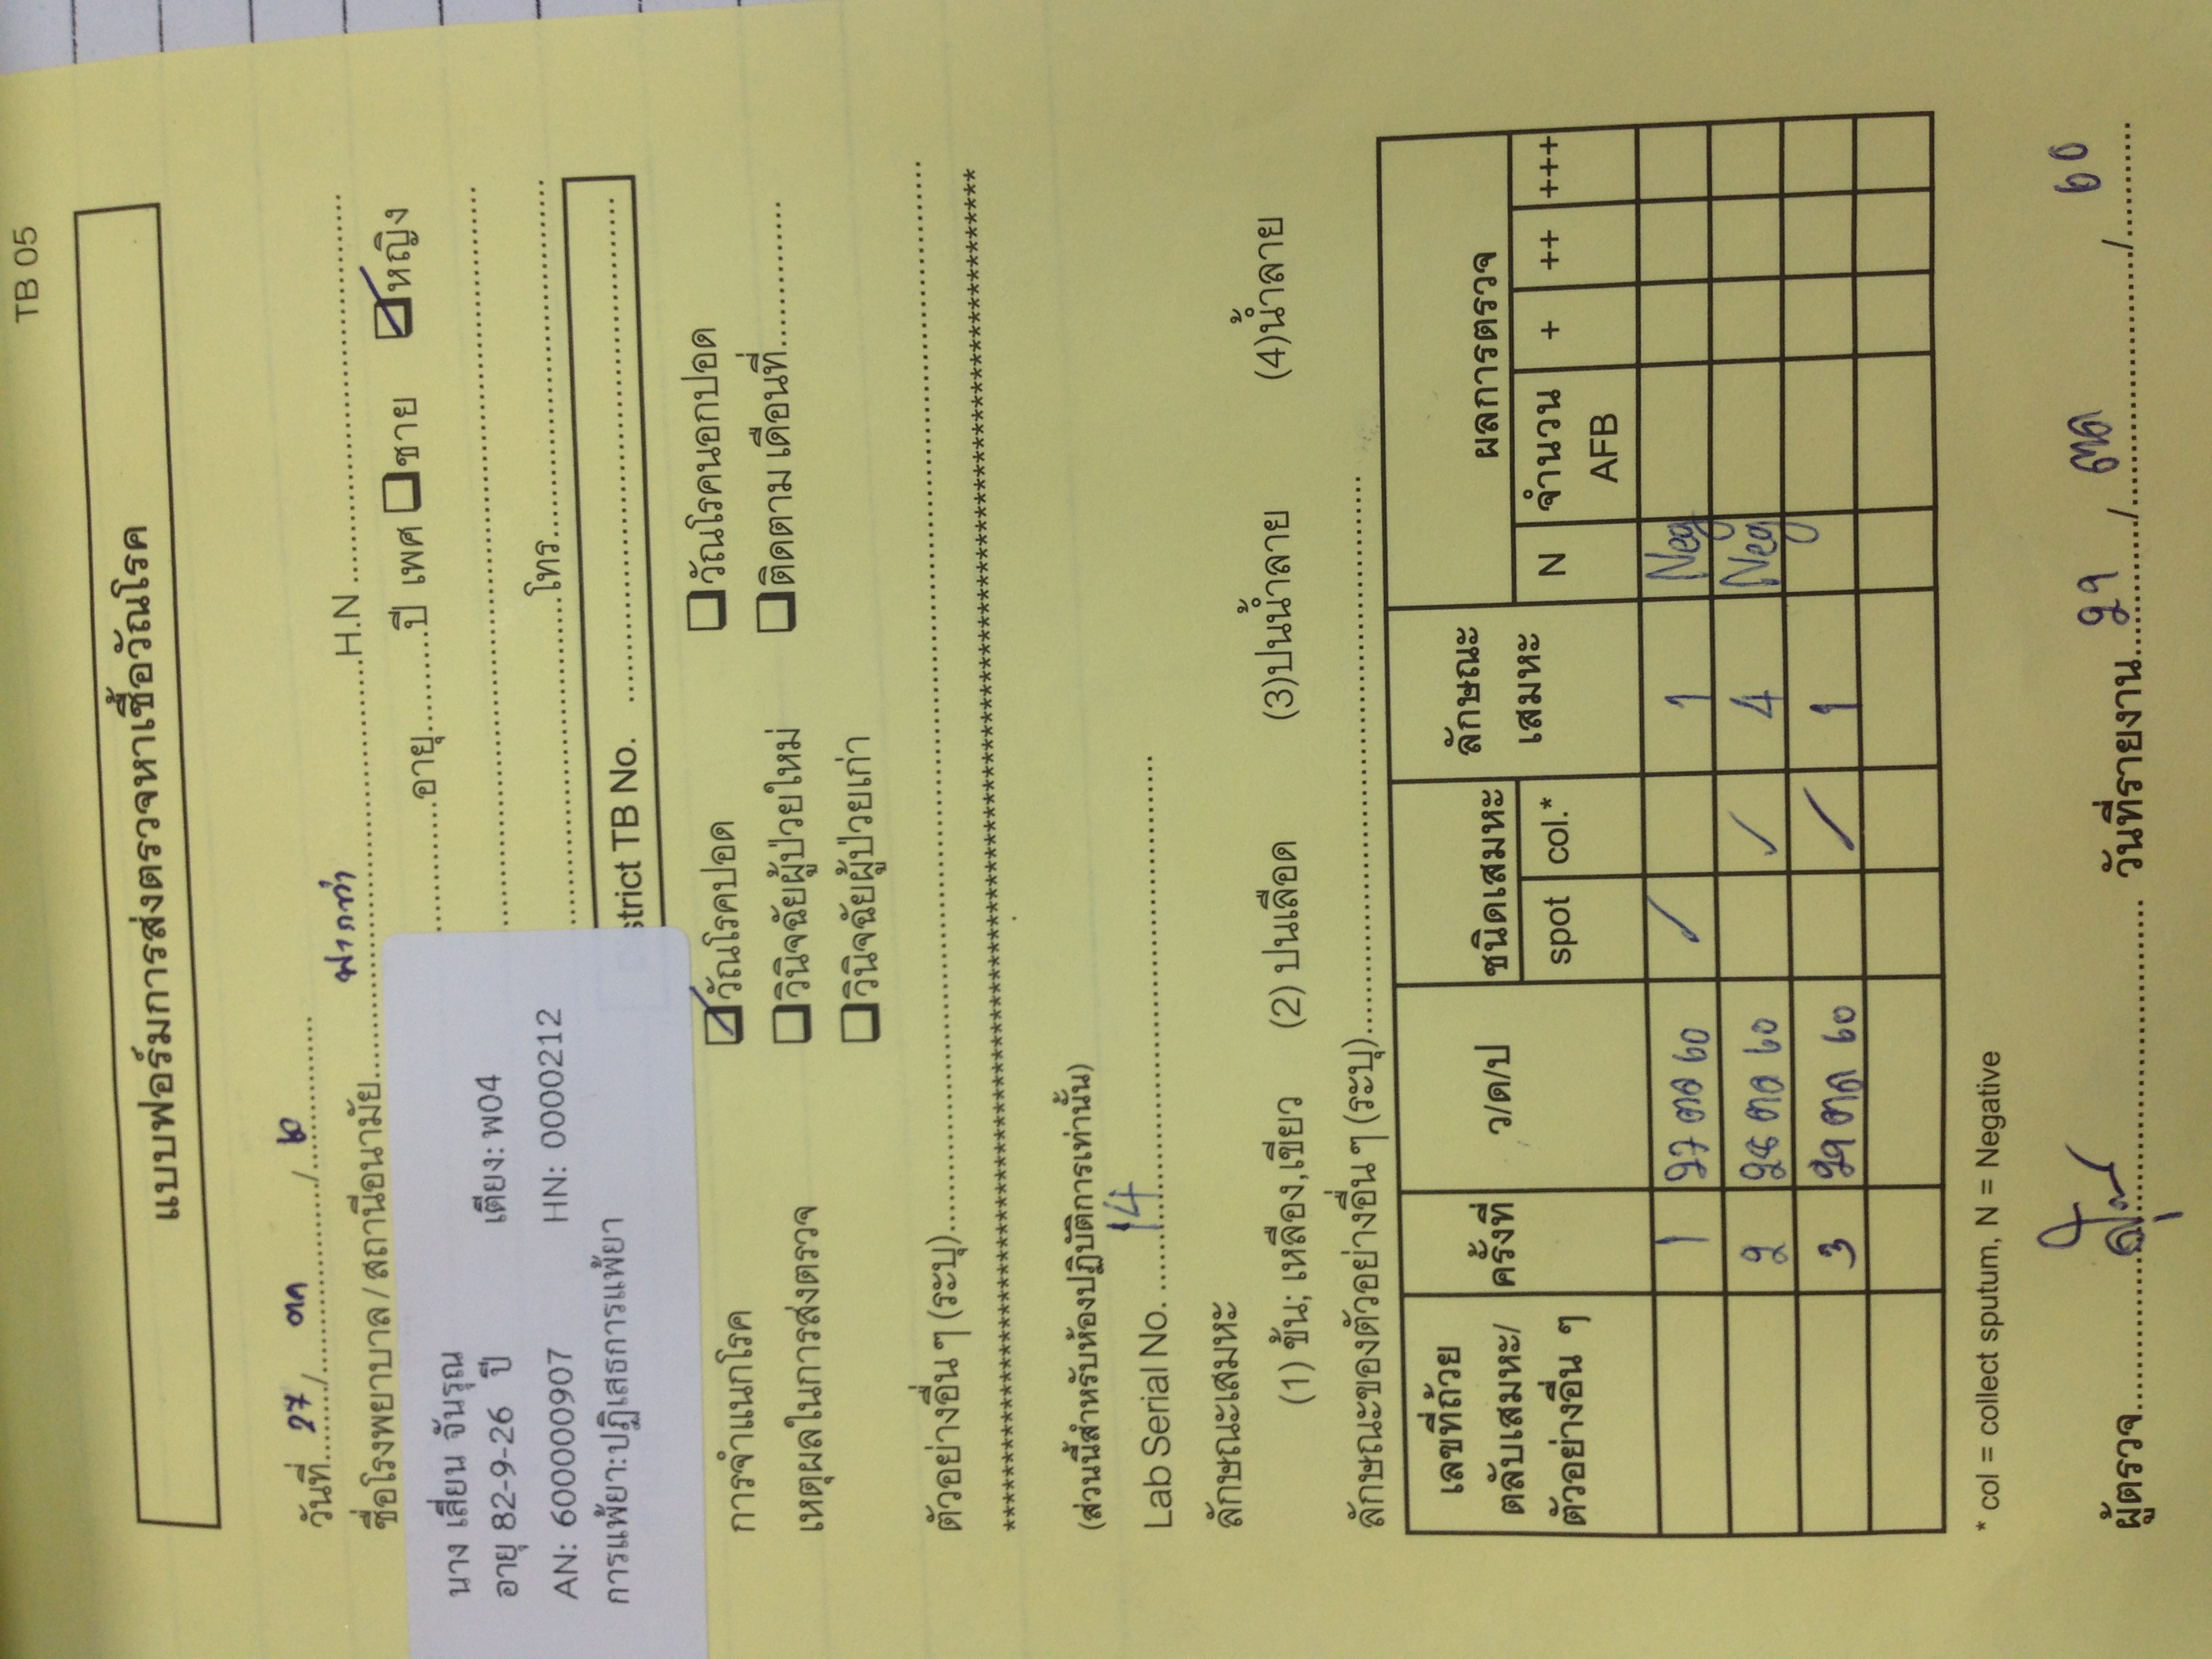 TB 05
แบบฟอร์มการส่งตรวจหาเชื้อวัณโรค
วันที่ 27 / ตค / ๖๐
ชื่อโรงพยาบาล / สถานีอนามัย ฟากท่า H.N
อายุ ปี เพศ ชาย หญิง
นาง เสี่ยน จันรุณ
อายุ 82-9-26 ปี เตียง: พ04
AN: 600000907 HN: 0000212
การแพ้ยา:ปฏิเสธการแพ้ยา
โทร
strict TB No.
การจำแนกโรค วัณโรคปอด วัณโรคนอกปอด
เหตุผลในการส่งตรวจ วินิจฉัยผู้ป่วยใหม่ ติดตาม เดือนที่
วินิจฉัยผู้ป่วยเก่า
ตัวอย่างอื่น ๆ (ระบุ)
(ส่วนนี้สำหรับห้องปฏิบัติการเท่านั้น)
Lab Serial No. 14
ลักษณะเสมหะ
(1) ข้น; เหลือง,เขียว (2) ปนเลือด (3)ปนน้ำลาย (4)น้ำลาย
ลักษณะของตัวอย่างอื่น ๆ (ระบุ)
เลขที่ถ้วย
ตลับเสมหะ/
ตัวอย่างอื่น ๆ
ครั้งที่ ว/ด/ป ชนิดเสมหะ
spot col.*
ลักษณะ
เสมหะ
ผลการตรวจ
N จำนวน + ++ +++
AFB
1 27 ตค 60 ✓ 1 Neg
2 28 ตค 60 ✓ 4 Neg
3 29 ตค 60 ✓ 1
* col = collect sputum, N = Negative
ผู้ตรวจ วันที่รายงาน 29 / ตค / 60